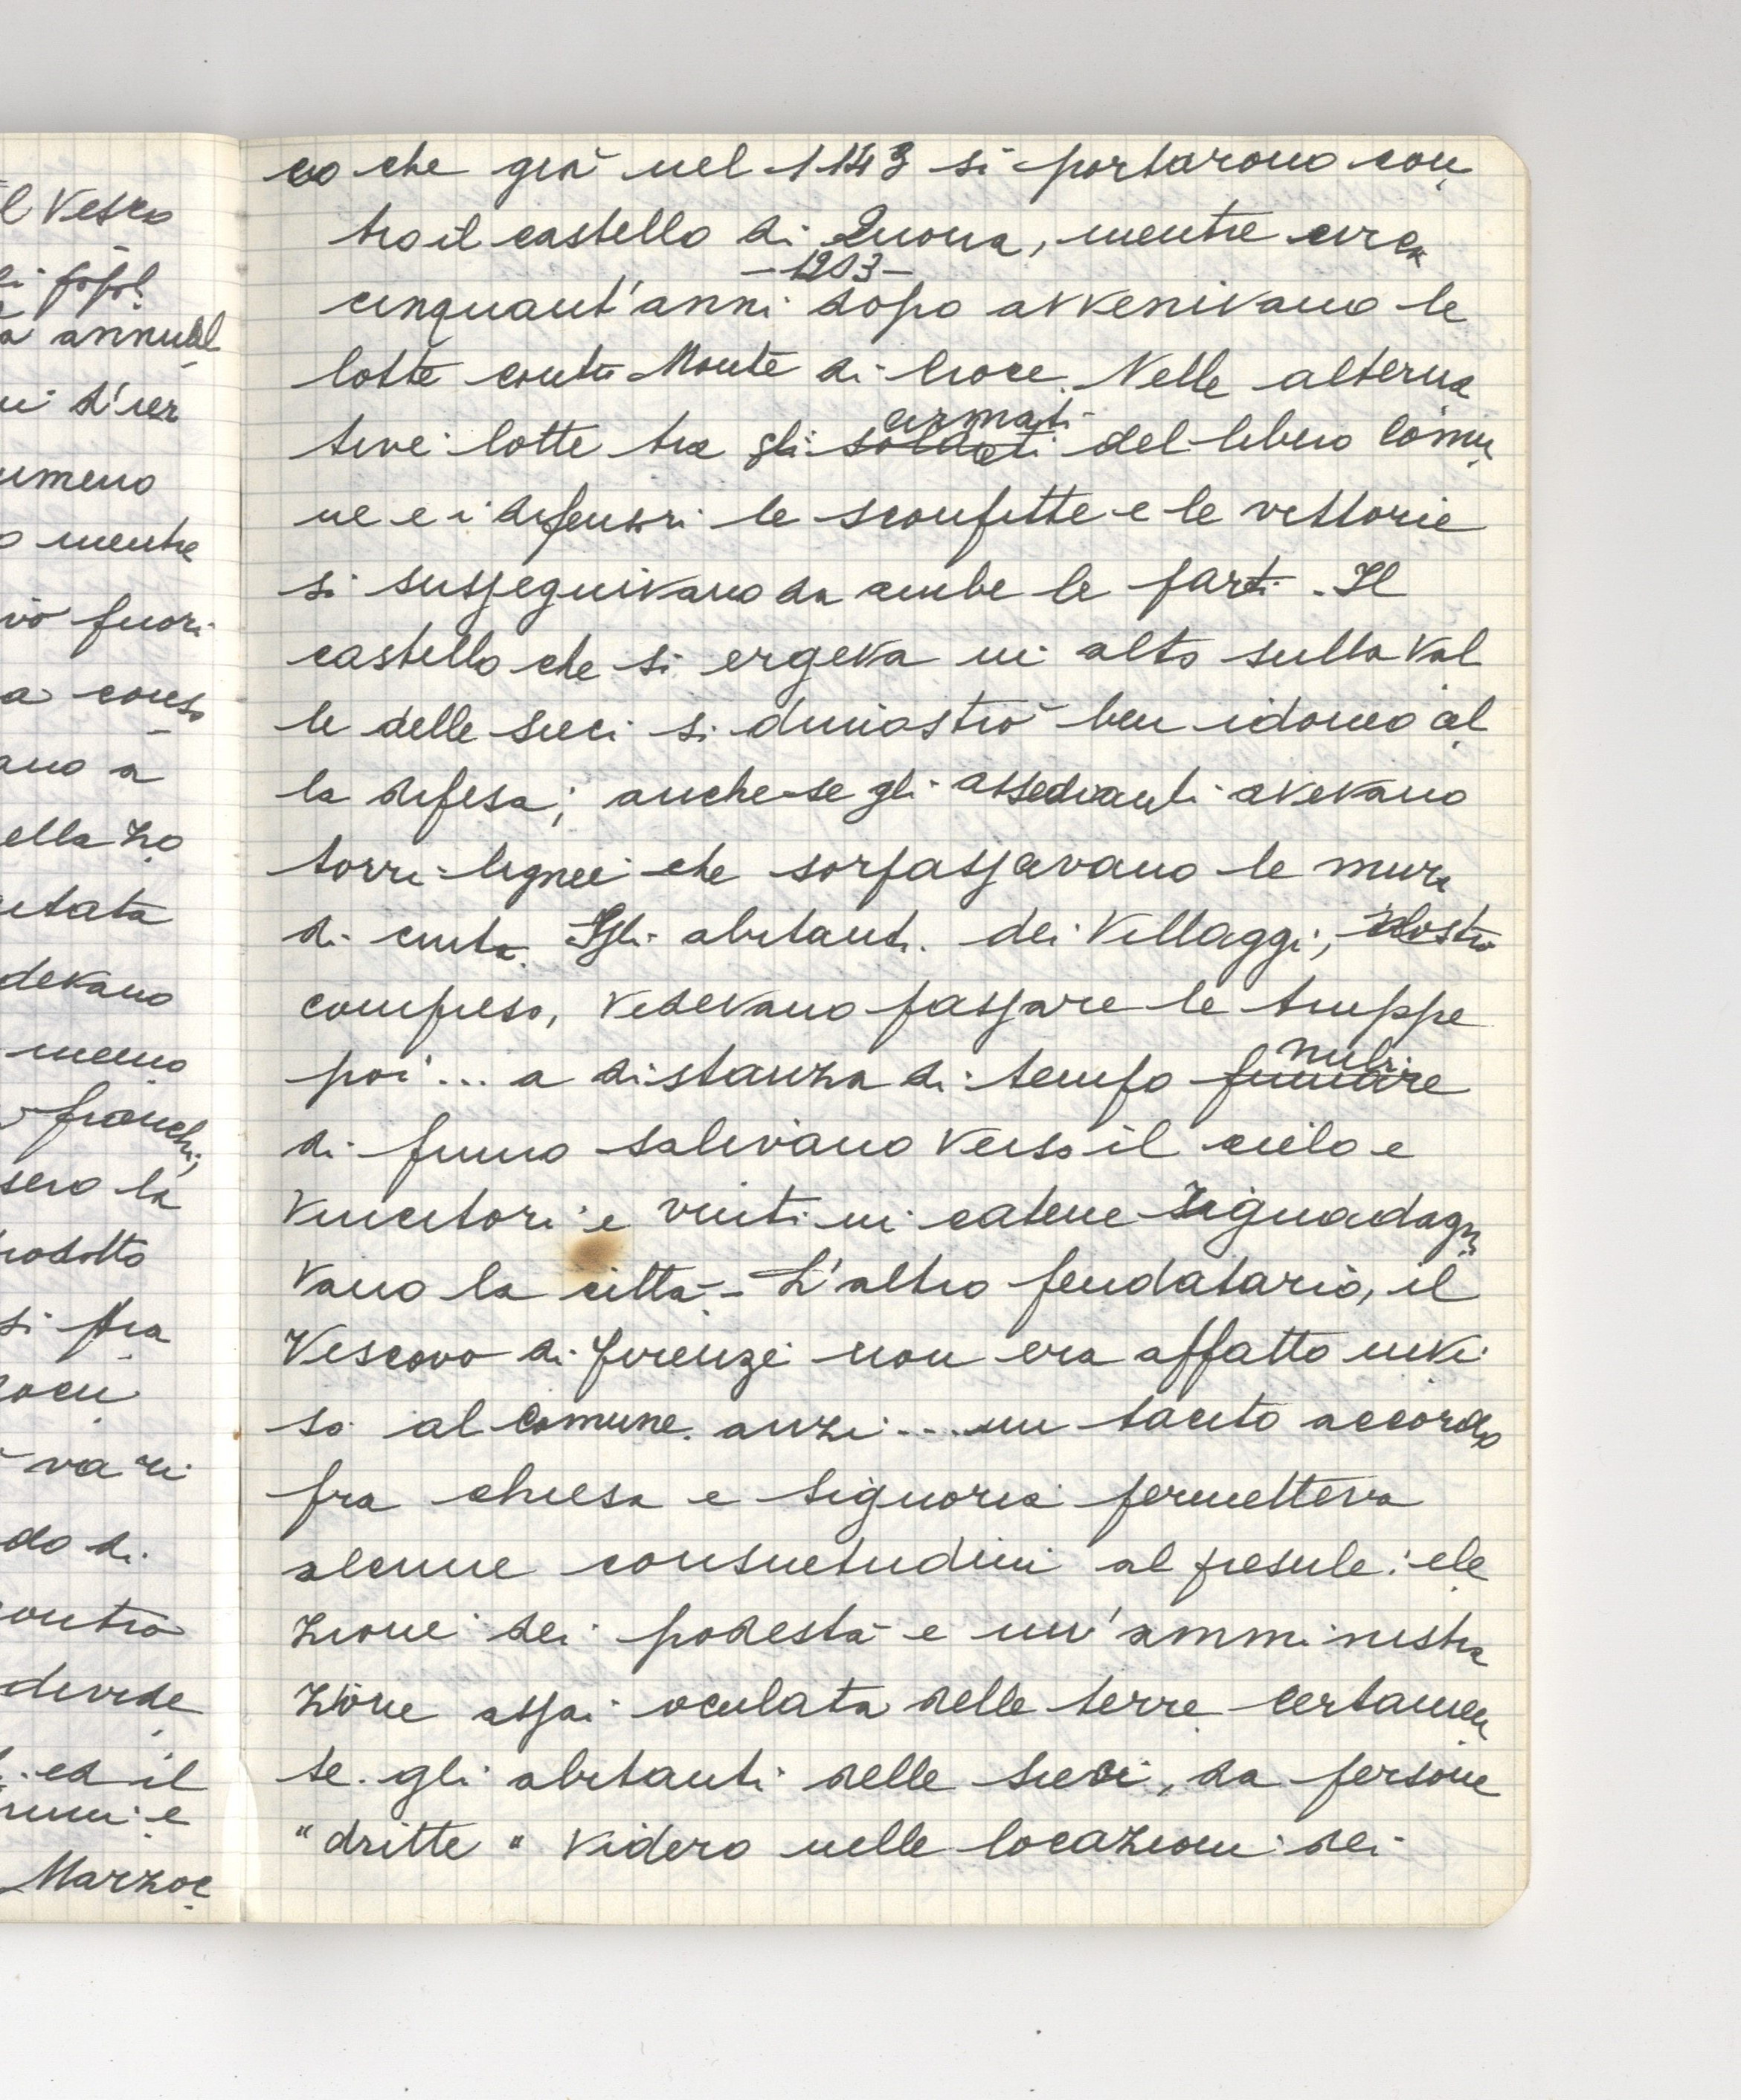 l Vesco
i popol
a annual
ni d'ier
umeno
o mentre
vò fuori
a conso
ano a
ella zo
utata
devano
meno
franchi,
sero la
rodotto
si fra
va ri
do di
contro
divide
ed il
e
Marzoc
co che già nel 1143 si portarono con
tro il castello di Quona, mentre circa
-1203-
cinquant'anni dopo avvenivano le
lotte contro Monte di Croce. Nelle alterna
armati
tive lotte tra gli soldati del libero Comu
ne e i difensori le sconfitte e le vittorie
si susseguivano da ambe le parti. Il
castello che si ergeva in alto sulla Val
le delle Sieci si dimostrò ben idoneo al
la difesa; anche se gli assedianti avevano
torri lignee che sorpassavano le mura
di cinta. Gli abitanti dei Villaggi, nostro
compreso, vedevano passare le truppe
nubi
poi... a distanza di tempo
di fumo salivano verso il cielo e
vincitori e vinti in catene riguadagn
vano la città - L'altro feudatario, il
Vescovo di Firenze non era affatto invi
so al Comune. anzi.... un tacito accordo
fra chiesa e signoria permetteva
alcune consuetudini al presule: ele
zione dei podestà e un'amministra
zione assai oculata delle terre certamen
te. gli abitanti delle Sieci, da persone
"dritte" videro nelle locazioni dei